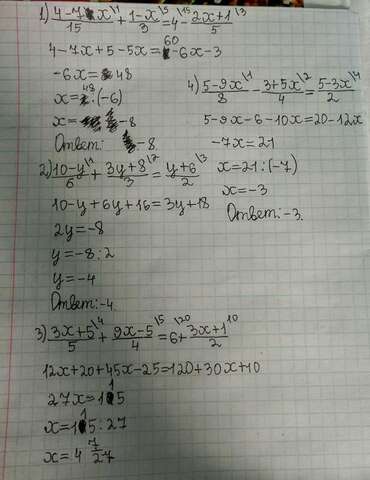 1) (4-7x\1)/15 + (1-x\5)/3 = 4\15 - (2x+1\3)/5
4-7x+5-5x=60-6x-3
-6x=48
x=48:(-6)
x=-8
Ответ: -8
2) (10-y\1)/6 + (3y+8\2)/3 = (y+6\3)/2
10-y+6y+16=3y+18
2y=-8
y=-8:2
y=-4
Ответ:-4
3) (3x+5\4)/5 + (9x-5\5)/4 = 6\20 + (3x+1\10)/2
12x+20+45x-25=120+30x+10
27x=115
x=115:27
x=4 7/27
4) (5-9x\1)/8 - (3+5x\2)/4 = (5-3x\4)/2
5-9x-6-10x=20-12x
-7x=21
x=21:(-7)
x=-3
Ответ:-3.